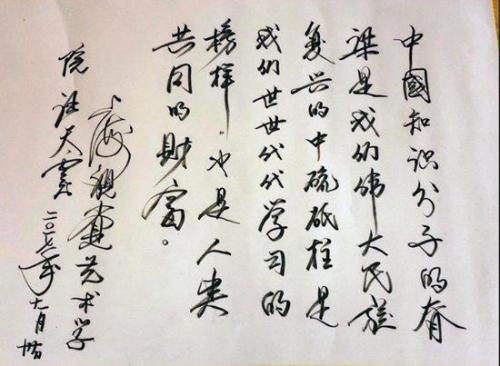 中國知识分子的脊
梁是我们伟大民族
复兴的中硫砥柱是
我们世世代代学习的
榜样。也是人类
共同的財富。
上海视觉艺术学
院 汪天雲 二〇一七年 月